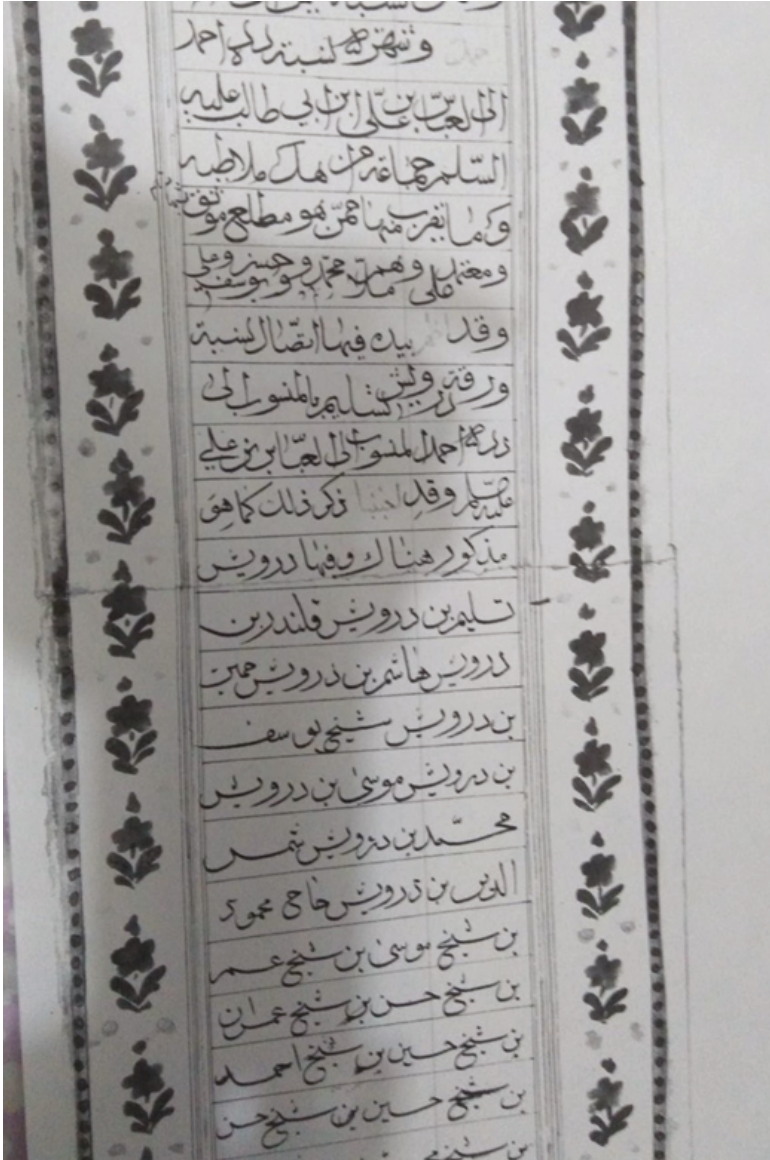 احمد
الى العباس بن علي ابن ابي طالب عليه
السلم جماعة من هناك ملاطيه
وما يقرب منها ممن هو مطلع موثق
ومعتمد
وقد فيها اتصال نسبة
ورقة درويش تسليم بالمنسوب الى
احمد المنسوب الى العباس بن علي
وقد ذكر ذلك كما هو
مذكور هناك وفيها درويش
تسليم بن درويش قلندر بن
درويش هاشم بن درويش حسين
بن درويش شيخ يوسف
بن درويش موسى بن درويش
محمد بن درويش شمس
الدين بن درويش حاجي محمود
بن شيخ موسى بن شيخ عمر
بن شيخ حسن بن شيخ عمران
بن شيخ حسين بن شيخ احمد
بن شيخ حسين بن شيخ حسن
بن شيخ